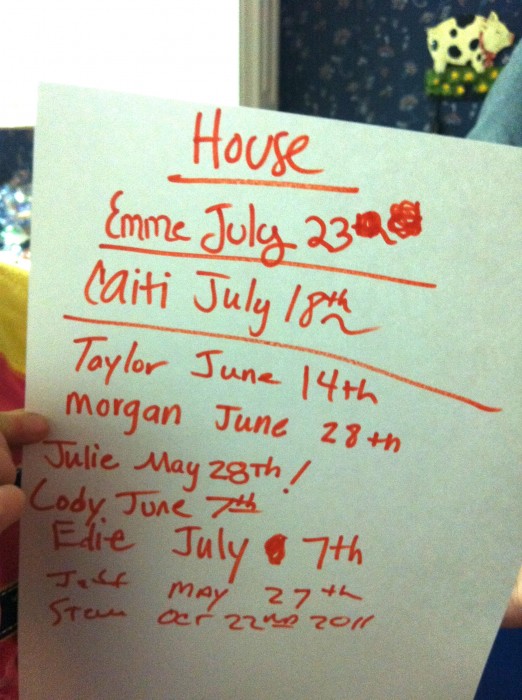 House
Emme July 23
Caiti July 18th
Taylor June 14th
Morgan June 28th
Julie May 28th!
Cody June 7th
Edie July 7th
Jeff May 27th
Steve Oct 22nd 2011